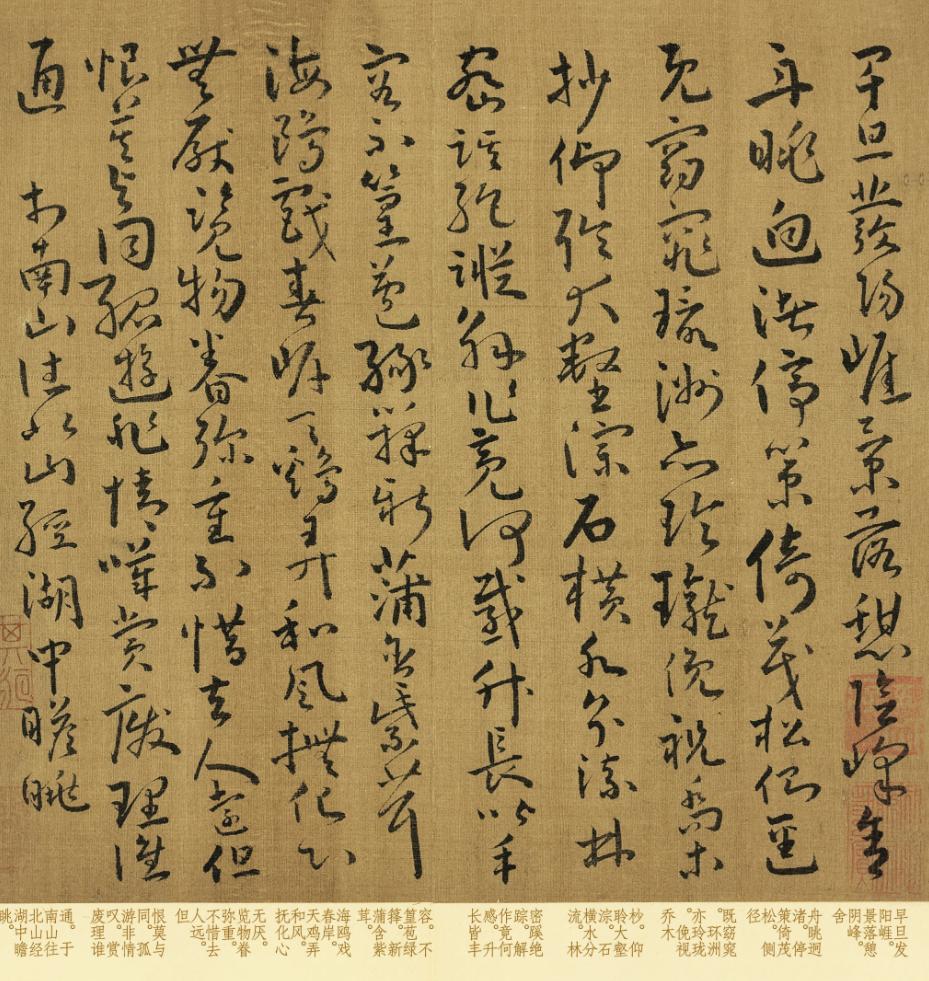 早旦發陽崖景落憩陰峰舍
舟眺迴渚停策倚茂松側逕
既窈窕環洲亦玲瓏俛視喬木
杪仰聆大壑淙石橫水分流林
密蹊絕蹤解作竟何感升長皆丰
容不篁苞綠籜新蒲含紫茸
海鷗戲春岸天鷄弄和風撫化心
無厭覽物眷彌重不惜去人遠但
恨莫與同孤遊非情嘆賞廢理誰
通 于南山往北山經湖中瞻眺
早旦发
阳崖。
景落憩
阴峰。
舍
舟眺迥
渚。停
策倚茂
松。侧
径
既窈窕
。环洲
亦玲珑
。俛视
乔木
杪。仰
聆大壑
淙。石
横水分
流。林
密蹊绝
踪。解
作竟何
感。升
长皆丰
容。不
篁苞绿
箨。新
蒲含紫
茸。
海鸥戏
春岸。
天鸡弄
和风。
抚化心
无厌。
览物眷
弥重。
不惜去
人远。
但
恨莫与
同。孤
游非情
叹。赏
废理谁
通。于
南山往
北山经
湖中瞻
眺。